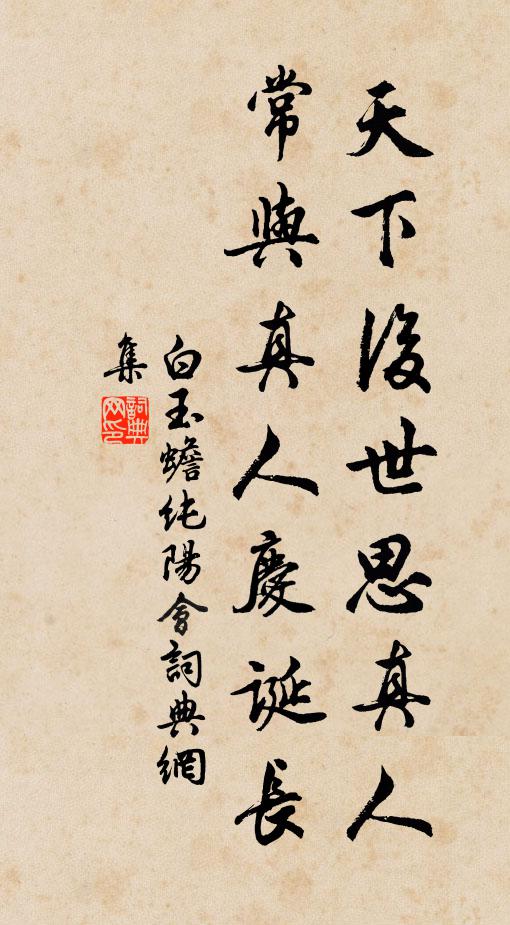 天下後世思真人
常與真人慶誕長
白玉蟾純陽會詞典網
集
詞典网印